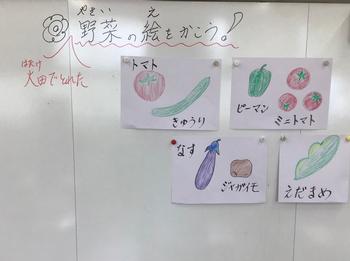 やさい え
野菜の絵をかこう!
はたけ
畑でとれた
トマト
きゅうり
ピーマン
ミニトマト
なす
ジャガイモ
えだまめ